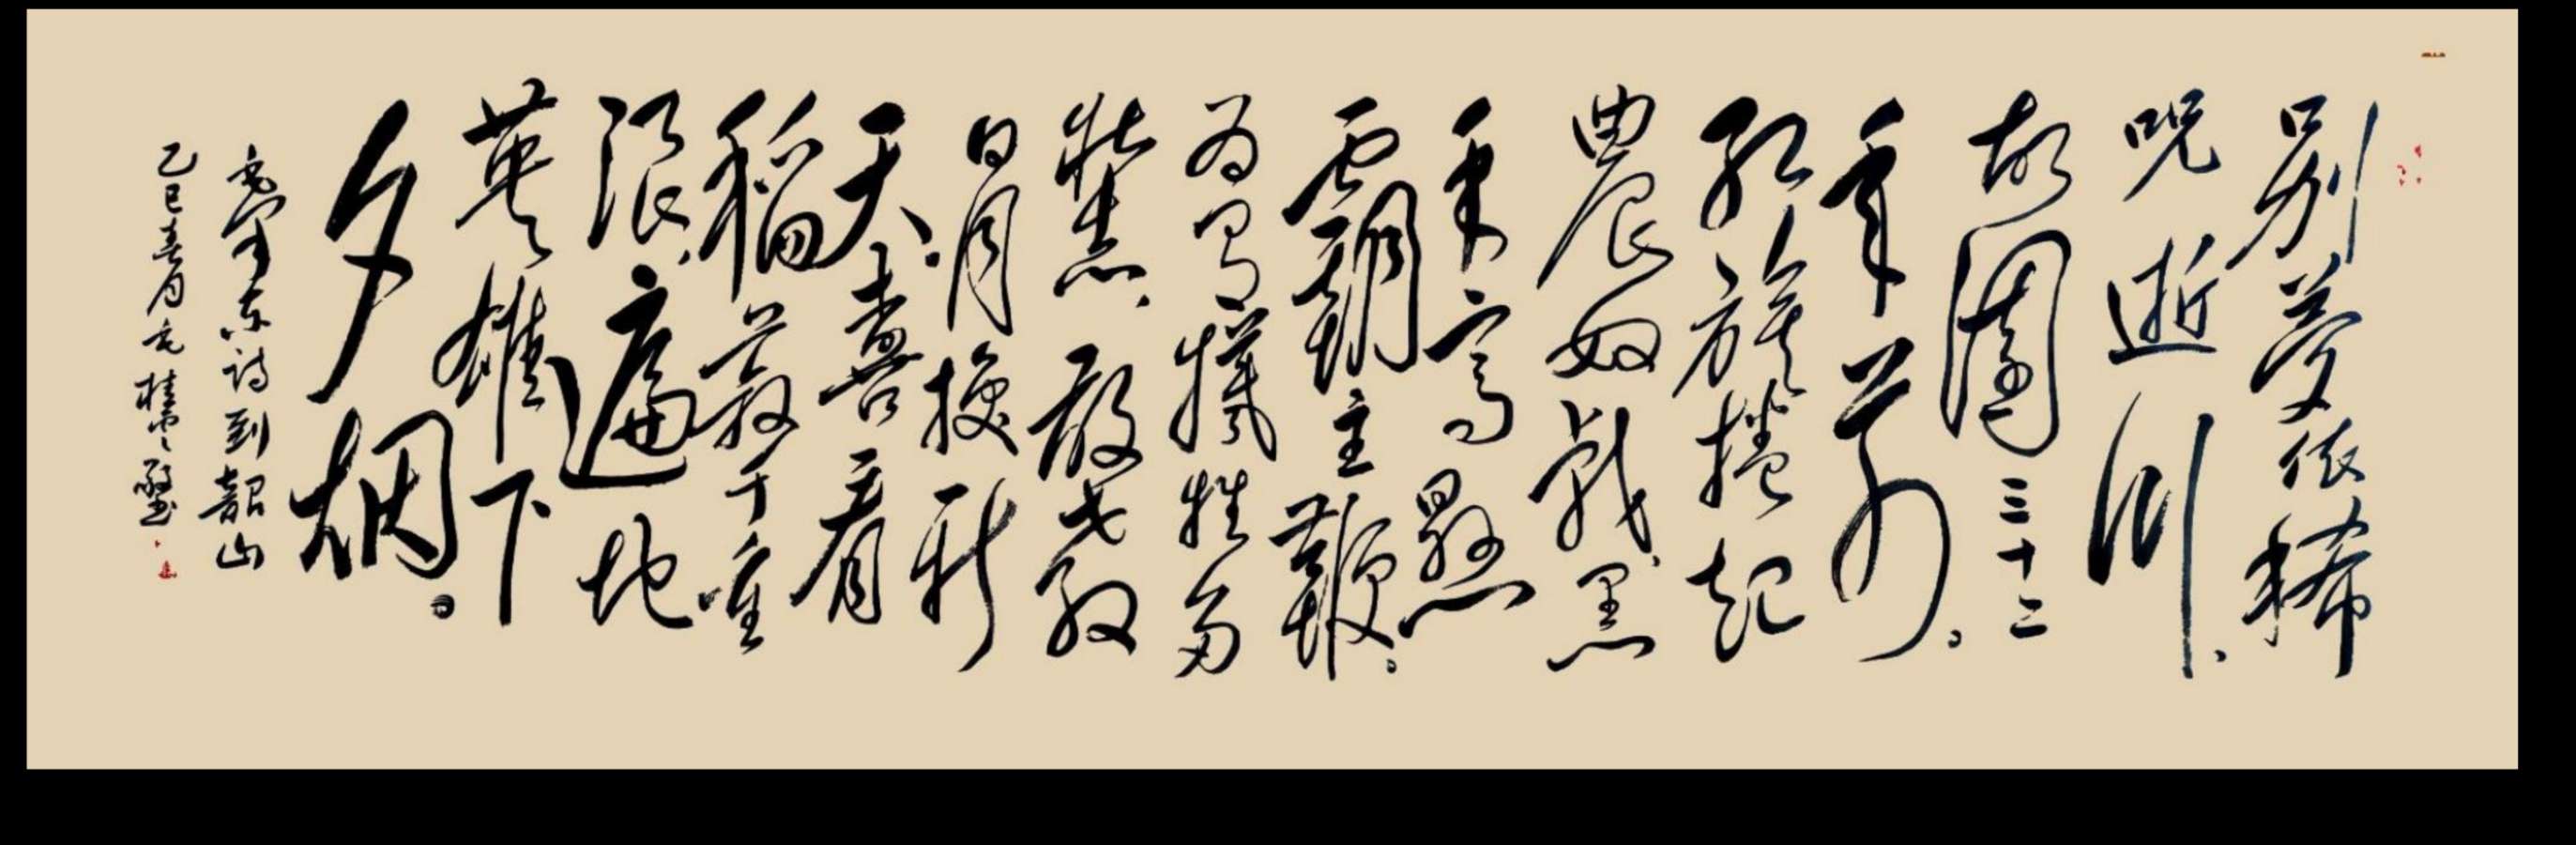 别梦依稀
呪逝川、
故園三十二
年前。
红旗捲起
農奴戟、黑
手高懸
霸主鞭。
为有犧牲多
壮志、敢教
日月换新
天、喜看
稻菽千重
浪、遍地
英雄下
夕烟。
毛泽东诗到韶山
乙巳春月毛桂云